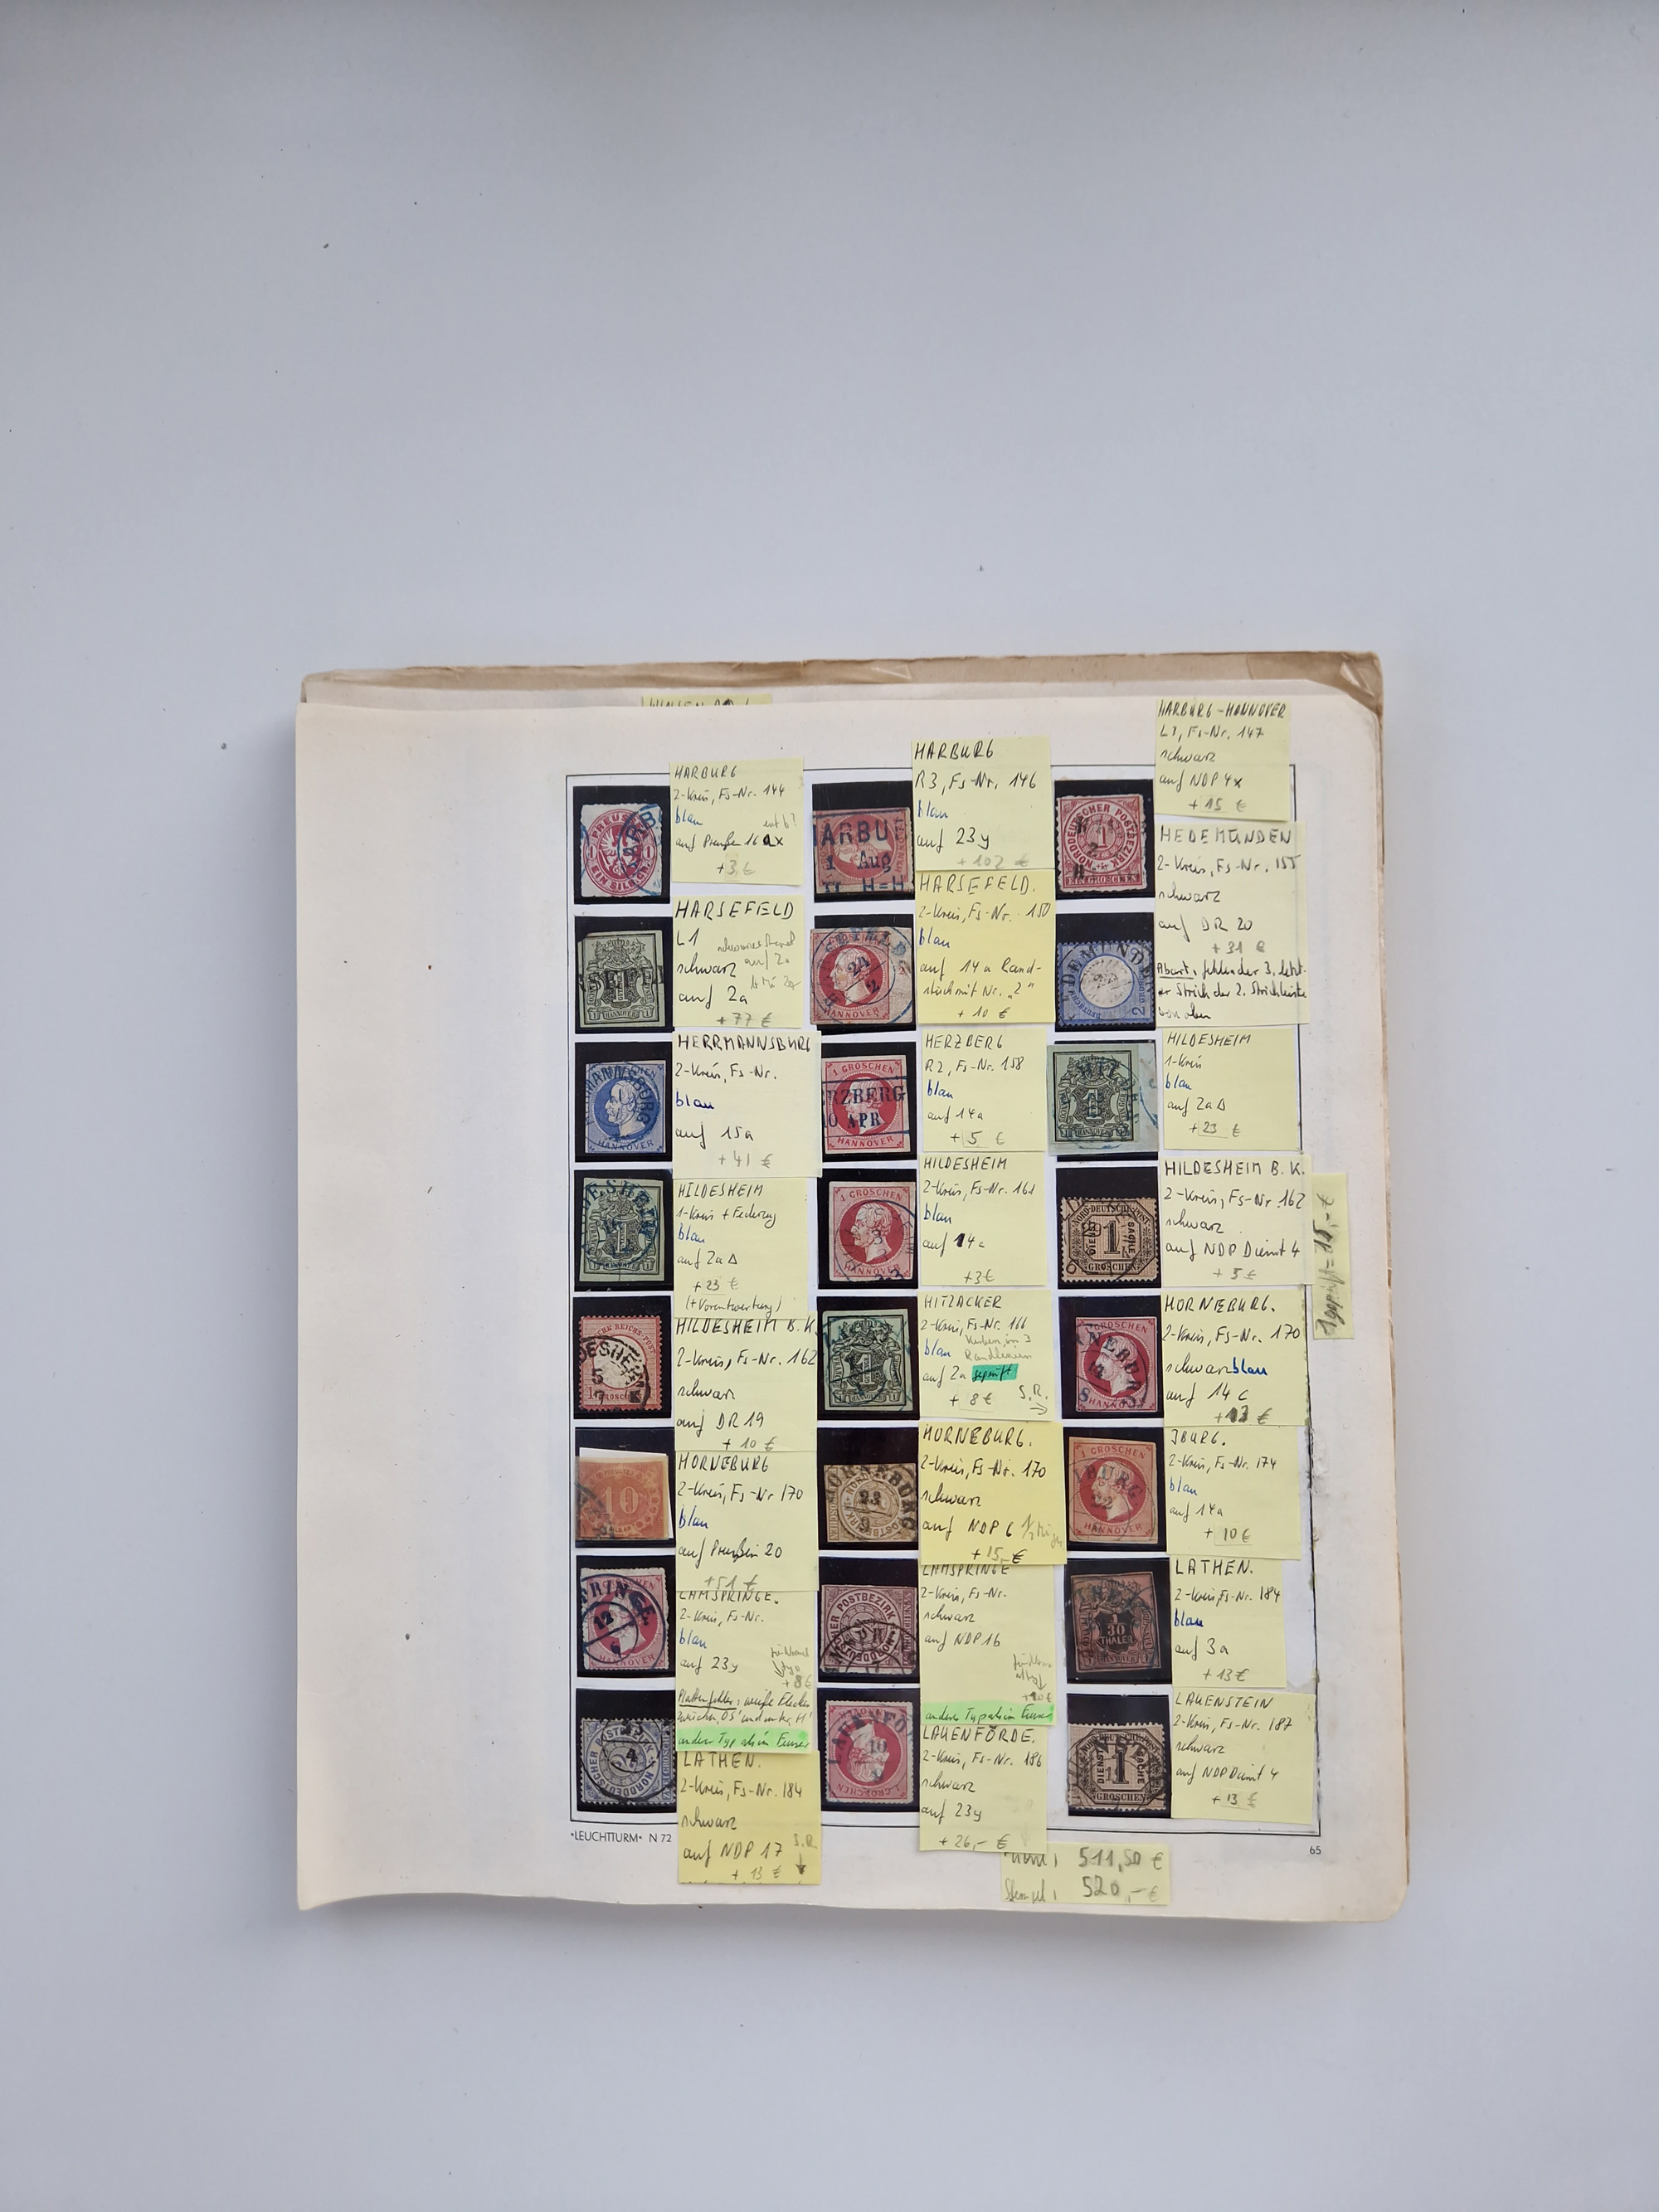 HARBURG
2-Kreis, Fs-Nr. 144
blau
auf Preußen 16 ax
+3,€
HARBURG
R3, Fs-Nr. 146
blau
auf 23y
+ 102 €
HARBURG-HANNOVER
L3, Fs-Nr. 147
schwarz
auf NDP 4x
+ 15 €
HARSEFELD
L1
schwarz
auf 2a
+ 77 €
HARSEFELD.
2-Kreis, Fs-Nr. 150
blau
auf 14a Rand-
stück mit Nr. „2"
+ 10 €
HEDEMÜNDEN
2-Kreis, Fs-Nr. 155
schwarz
auf DR 20
+ 31 €
Abart: fehlender 3. letzt-
er Strich der 2. Strichleiste
von oben
HERRMANNSBURG
2-Kreis, Fs-Nr.
blau
auf 15a
+ 41 €
HERZBERG
R2, Fs-Nr. 158
blau
auf 14a
+ 5 €
HILDESHEIM
1-Kreis
blau
auf 2a Δ
+ 23 €
HILDESHEIM
1-Kreis + Federzug
blau
auf 2a Δ
+ 23 €
(+Vorentwertung)
HILDESHEIM
2-Kreis, Fs-Nr. 161
blau
auf 14a
+3€
HILDESHEIM B.K.
2-Kreis, Fs-Nr. 162
schwarz
auf NDP Dienst 4
+ 5 €
HILDESHEIM B.K.
2-Kreis, Fs-Nr. 162
schwarz
auf DR 19
+ 10 €
HITZACKER
2-Kreis, Fs-Nr. 166
blau
Kerben in 3
Randlinien
auf 2a geprüft
+ 8 €
S.R.
HORNEBURG.
2-Kreis, Fs-Nr. 170
schwarzblau
auf 14 c
+ 13 €
HORNEBURG
2-Kreis, Fs-Nr 170
blau
auf Preußen 20
+ 51 €
HORNEBURG.
2-Kreis, Fs-Nr. 170
schwarz
auf NDP 6
+ 15,- €
JBURG.
2-Kreis, Fs-Nr. 174
blau
auf 14a
+ 10 €
LAMSPRINGE.
2-Kreis, Fs-Nr.
blau
auf 23y
+ 8 €
Plattenfehler: weiße Flecken
zwischen „OS" und unter „H"
anderer Typ als im Feuser
LAMSPRINGE
2-Kreis, Fs-Nr.
schwarz
auf NDP 16
anderer Typ als im Feuser
LATHEN.
2-Kreis, Fs-Nr. 184
blau
auf 3a
+ 13 €
LATHEN.
2-Kreis, Fs-Nr. 184
schwarz
auf NDP 17
+ 13 €
S.R.
LAUENFÖRDE.
2-Kreis, Fs-Nr. 186
schwarz
auf 23y
+ 26,- €
LAUENSTEIN
2-Kreis, Fs-Nr. 187
schwarz
auf NDP Dienst 4
+ 13 €
*LEUCHTTURM* N 72
65
511,50 €
Stempel: 520,- €